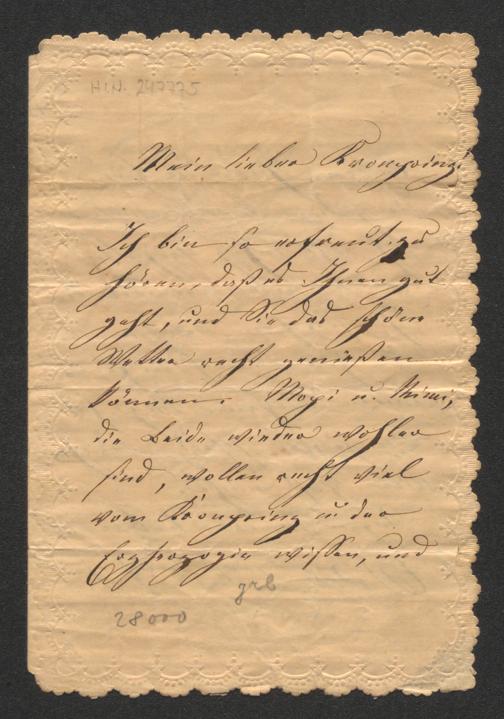 H.I.N. 247775
Mein lieber Kronprinz!
Ich bin so erfreut zu
hören, daß es Ihnen gut
geht, und Sie das schöne
Wetter recht genießen
können. Mopi u. Mimi,
die beide wieder wohler
sind, wollen recht viel
vom Kronprinz u. der
Erzherzogin wissen, und
28000